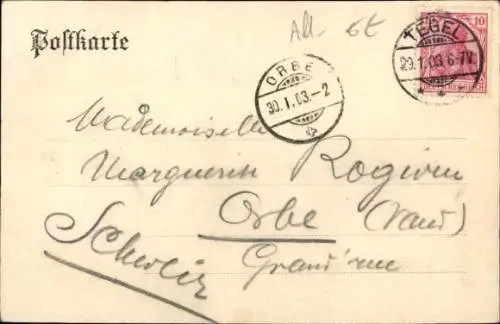 All. 6t
Postkarte
TEGEL
29.1.03.6-7N.
10
ORBE
30.I.03.-2
Mademoiselle
Marguerite Rogivue
Orbe (Vaud)
Schweiz Grand'rue